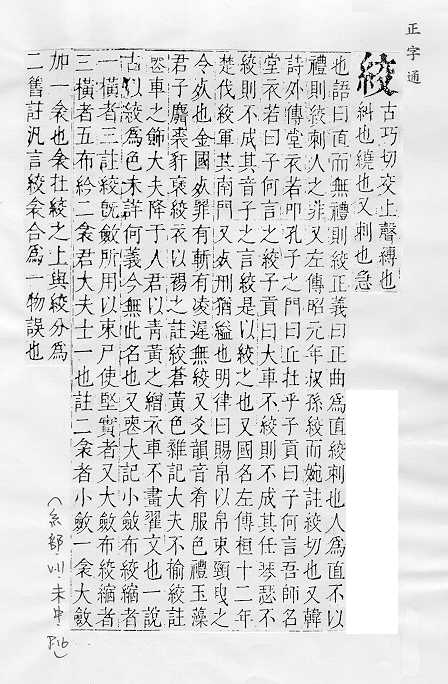 正字通
絞
古巧切交上聲縛也
糾也繞也又刺也急
也語曰直而無禮則絞正義曰正曲爲直絞刺也人爲直不以
禮則絞刺人之非又左傳昭元年叔孫絞而婉註絞切也又韓
詩外傳堂衣若叩孔子之門曰丘在乎子貢曰子何言吾師名
堂衣若曰子何言之絞子貢曰大車不絞則不成其任琴瑟不
絞則不成其音子之言絞是以絞之也又國名左傳桓十二年
楚伐絞軍其南門又死刑猶縊也明律曰賜帛以帛束頸曳之
令死也金國死罪有斬有凌遲無絞又爻韻音肴服色禮玉藻
君子麛裘豻褎絞衣以裼之註絞蒼黃色雜記大夫不揄絞註
喪車之飾大夫降于人君以青黃之繒衣車不畫翟文也一說
古以絞爲色未詳何義今無此名也又喪大記小斂布絞縮者
一橫者三註絞旣斂所用以束尸使堅實者又大斂布絞縮者
三橫者五布紟二衾君大夫士一也註二衾者小斂一衾大斂
加一衾也衾在絞之上與絞分爲
二舊註汎言絞衾合爲一物誤也
(糸部